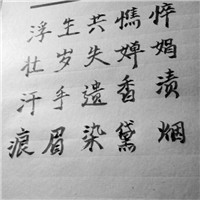 浮生共憔悴
壮岁失婵娟
汗手遗香渍
痕眉染黛烟